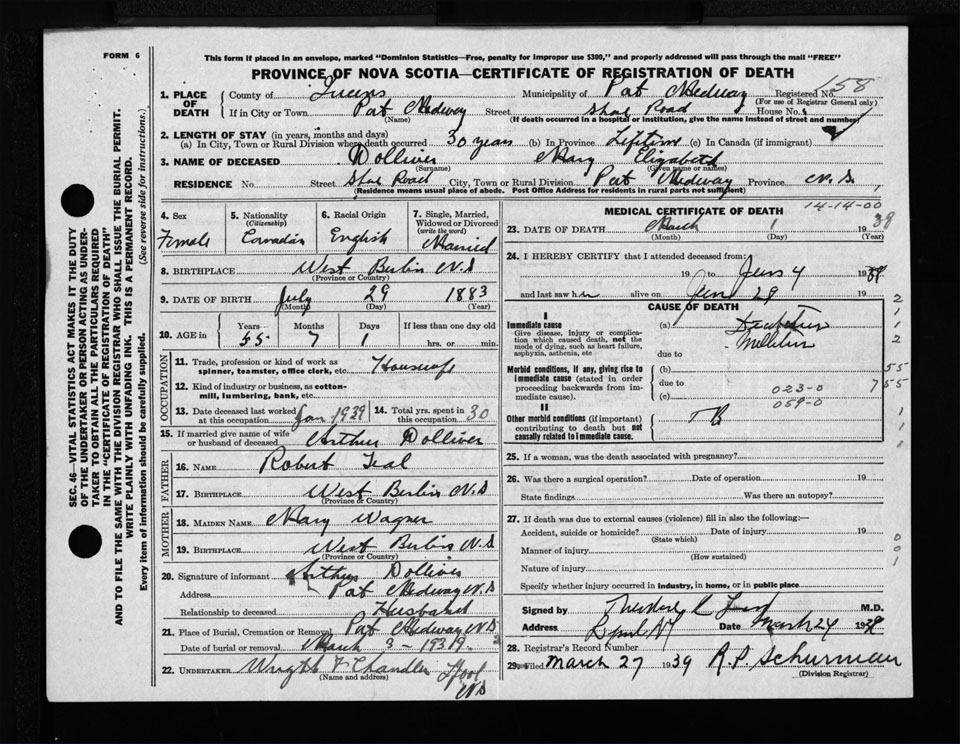 FORM 6
This form if placed in an envelope, marked "Dominion Statistics—Free, penalty for improper use $300," and properly addressed will pass through the mail "FREE"
PROVINCE OF NOVA SCOTIA—CERTIFICATE OF REGISTRATION OF DEATH
158
1. PLACE OF DEATH County of Queens Municipality of Port Medway Registered No.
(For use of Registrar General only)
If in City or Town Port Medway Street Shore Road House No.
(Name) (If death occurred in a hospital or institution, give the name instead of street and number)
2. LENGTH OF STAY (in years, months and days)
(a) In City, Town or Rural Division where death occurred 30 years (b) In Province Lifetime (c) In Canada (if immigrant)
3. NAME OF DECEASED Dolliver Mary Elizabeth
(Surname) (Given name or names)
RESIDENCE No. Street Shore Road City, Town or Rural Division Port Medway Province N.S.
(Residence means usual place of abode. Post Office Address for residents in rural parts not sufficient)
SEC. 46—VITAL STATISTICS ACT MAKES IT THE DUTY
OF THE UNDERTAKER OR PERSON ACTING AS UNDER-
TAKER TO OBTAIN ALL THE PARTICULARS REQUIRED
IN THE "CERTIFICATE OF REGISTRATION OF DEATH"
AND TO FILE THE SAME WITH THE DIVISION REGISTRAR WHO SHALL ISSUE THE BURIAL PERMIT.
WRITE PLAINLY WITH UNFADING INK. THIS IS A PERMANENT RECORD.
Every item of information should be carefully supplied. (See reverse side for instructions.)
4. Sex
Female
5. Nationality
(Citizenship)
Canadian
6. Racial Origin
English
7. Single, Married,
Widowed or Divorced
(write the word)
Married
8. BIRTHPLACE West Berlin N.S
(Province or Country)
9. DATE OF BIRTH July 29 1883
(Month) (Day) (Year)
10. AGE in Years Months Days If less than one day
55 7 1 hrs. or min.
OCCUPATION
11. Trade, profession or kind of work as
spinner, teamster, office clerk, etc. Housewife
12. Kind of industry or business, as cotton-
mill, lumbering, bank, etc.
13. Date deceased last worked
at this occupation Jan 1939
14. Total yrs. spent in
this occupation 30
15. If married give name of wife
or husband of deceased Arthur Dolliver
FATHER
16. NAME Robert Teal
17. BIRTHPLACE West Berlin N.S
(Province or Country)
MOTHER
18. MAIDEN NAME Mary Wagner
19. BIRTHPLACE West Berlin N.S
(Province or Country)
20. Signature of informant Arthur Dolliver
Address Port Medway N.S
Relationship to deceased Husband
21. Place of Burial, Cremation or Removal Port Medway N.S
Date of burial or removal March 3 - 1939
22. UNDERTAKER Wright F Chandler L'pool
(Name and address) N.S
MEDICAL CERTIFICATE OF DEATH
14-14-00
23. DATE OF DEATH March 1 1939
(Month) (Day) (Year)
24. I HEREBY CERTIFY that I attended deceased from:
19 to 19
and last saw h alive on 29 19
CAUSE OF DEATH
I
Immediate cause
Give disease, injury or complica-
tion which caused death, not the
mode of dying, such as heart failure,
asphyxia, asthenia, etc
(a) Diabetes
Mellitus
due to
Morbid conditions, if any, giving rise to
immediate cause (stated in order
proceeding backwards from im-
mediate cause).
(b)
due to
(c)
023-0
059-0
II
Other morbid conditions (if important)
contributing to death but not
causally related to immediate cause.
TB
2
1
1
2
55
755
25. If a woman, was the death associated with pregnancy?
26. Was there a surgical operation? Date of operation 19
State findings Was there an autopsy?
27. If death was due to external causes (violence) fill in also the following:—
Accident, suicide or homicide? Date of injury 19
(State which)
Manner of injury
(How sustained)
Nature of injury
0
0
1
Specify whether injury occurred in industry, in home, or in public place
Signed by M.D.
Address Date March 24 1939
28. Registrar's Record Number
29. Filed March 27 1939 R.P. Schurman
(Division Registrar)